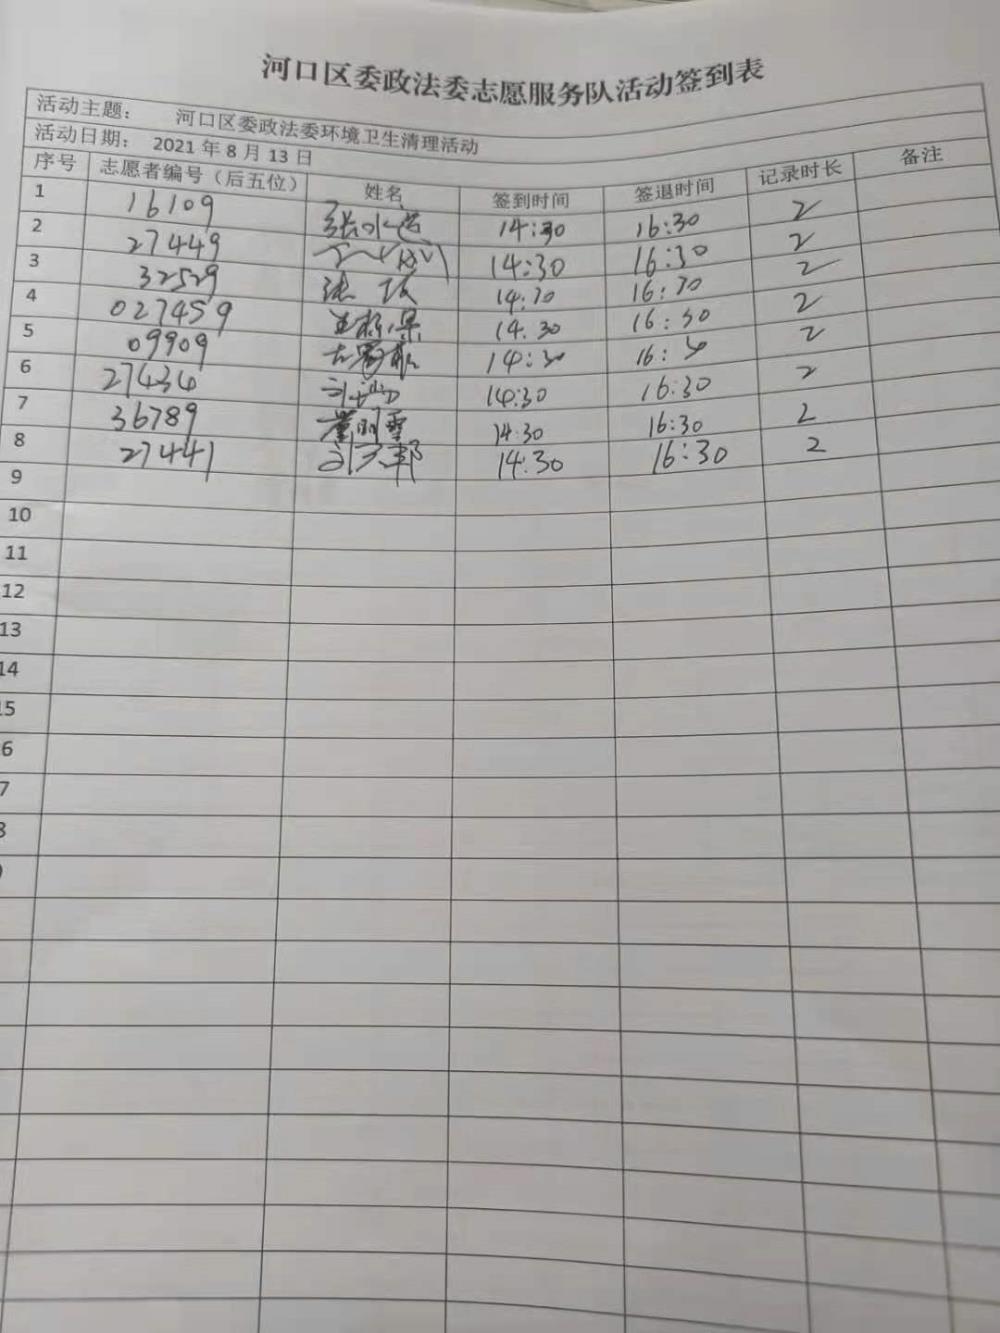 河口区委政法委志愿服务队活动签到表
活动主题： 河口区委政法委环境卫生清理活动
活动日期： 2021 年 8 月 13 日
序号 志愿者编号（后五位） 姓名 签到时间 签退时间 记录时长 备注
1 16109 14:30 16:30 2
2 27449 14:30 16:30 2
3 32529 14:30 16:30 2
4 027459 14:30 16:30 2
5 09909 14:30 16:30 2
6 27434 14:30 16:30 2
7 36789 董明雪 14:30 16:30 2
8 27441 14:30 16:30 2
9
10
11
12
13
14
15
6
7
8